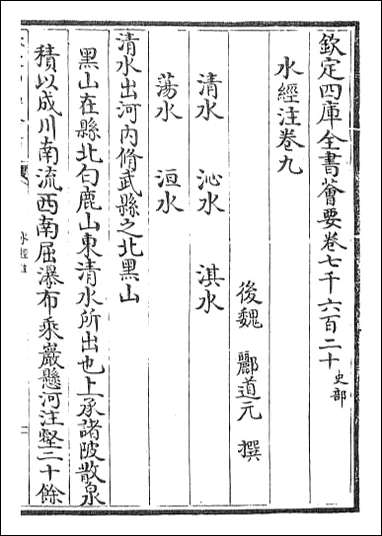 欽定四庫全書薈要卷七千六百二十 史部
水經注卷九
後魏 酈道元 撰
清水 沁水 淇水
蕩水 洹水
清水出河內脩武縣之北黑山
黑山在縣北白鹿山東清水所出也上承諸陂散泉
積以成川南流西南屈瀑布乗巖懸河注壑二十餘